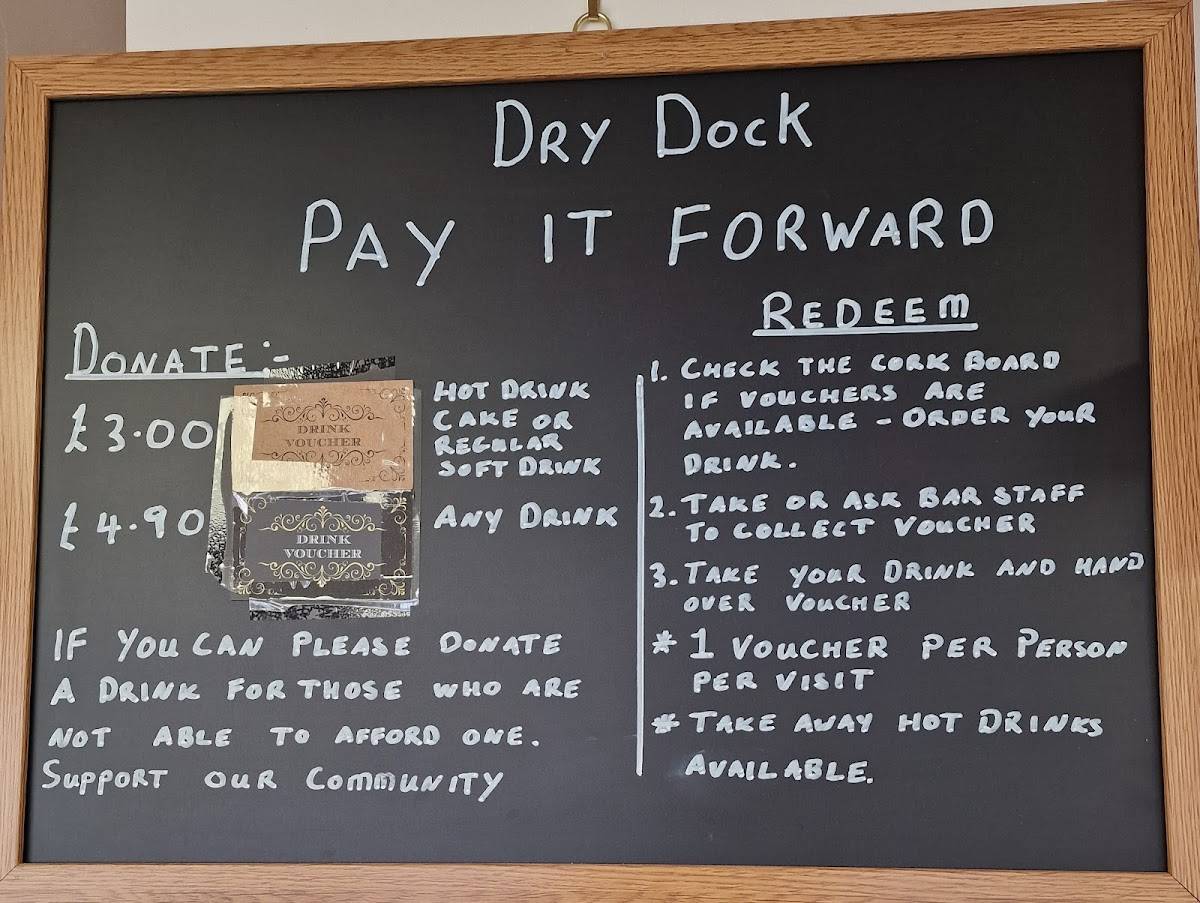 DRY DOCK
PAY IT FORWARD
DONATE:-
£3.00
DRINK
VOUCHER
HOT DRINK
CAKE OR
REGULAR
SOFT DRINK
£4.90
DRINK
VOUCHER
ANY DRINK
IF YOU CAN PLEASE DONATE
A DRINK FOR THOSE WHO ARE
NOT ABLE TO AFFORD ONE.
SUPPORT OUR COMMUNITY
REDEEM
1. CHECK THE CORK BOARD
IF VOUCHERS ARE
AVAILABLE - ORDER YOUR
DRINK.
2. TAKE OR ASK BAR STAFF
TO COLLECT VOUCHER
3. TAKE YOUR DRINK AND HAND
OVER VOUCHER
* 1 VOUCHER PER PERSON
PER VISIT
* TAKE AWAY HOT DRINKS
AVAILABLE.